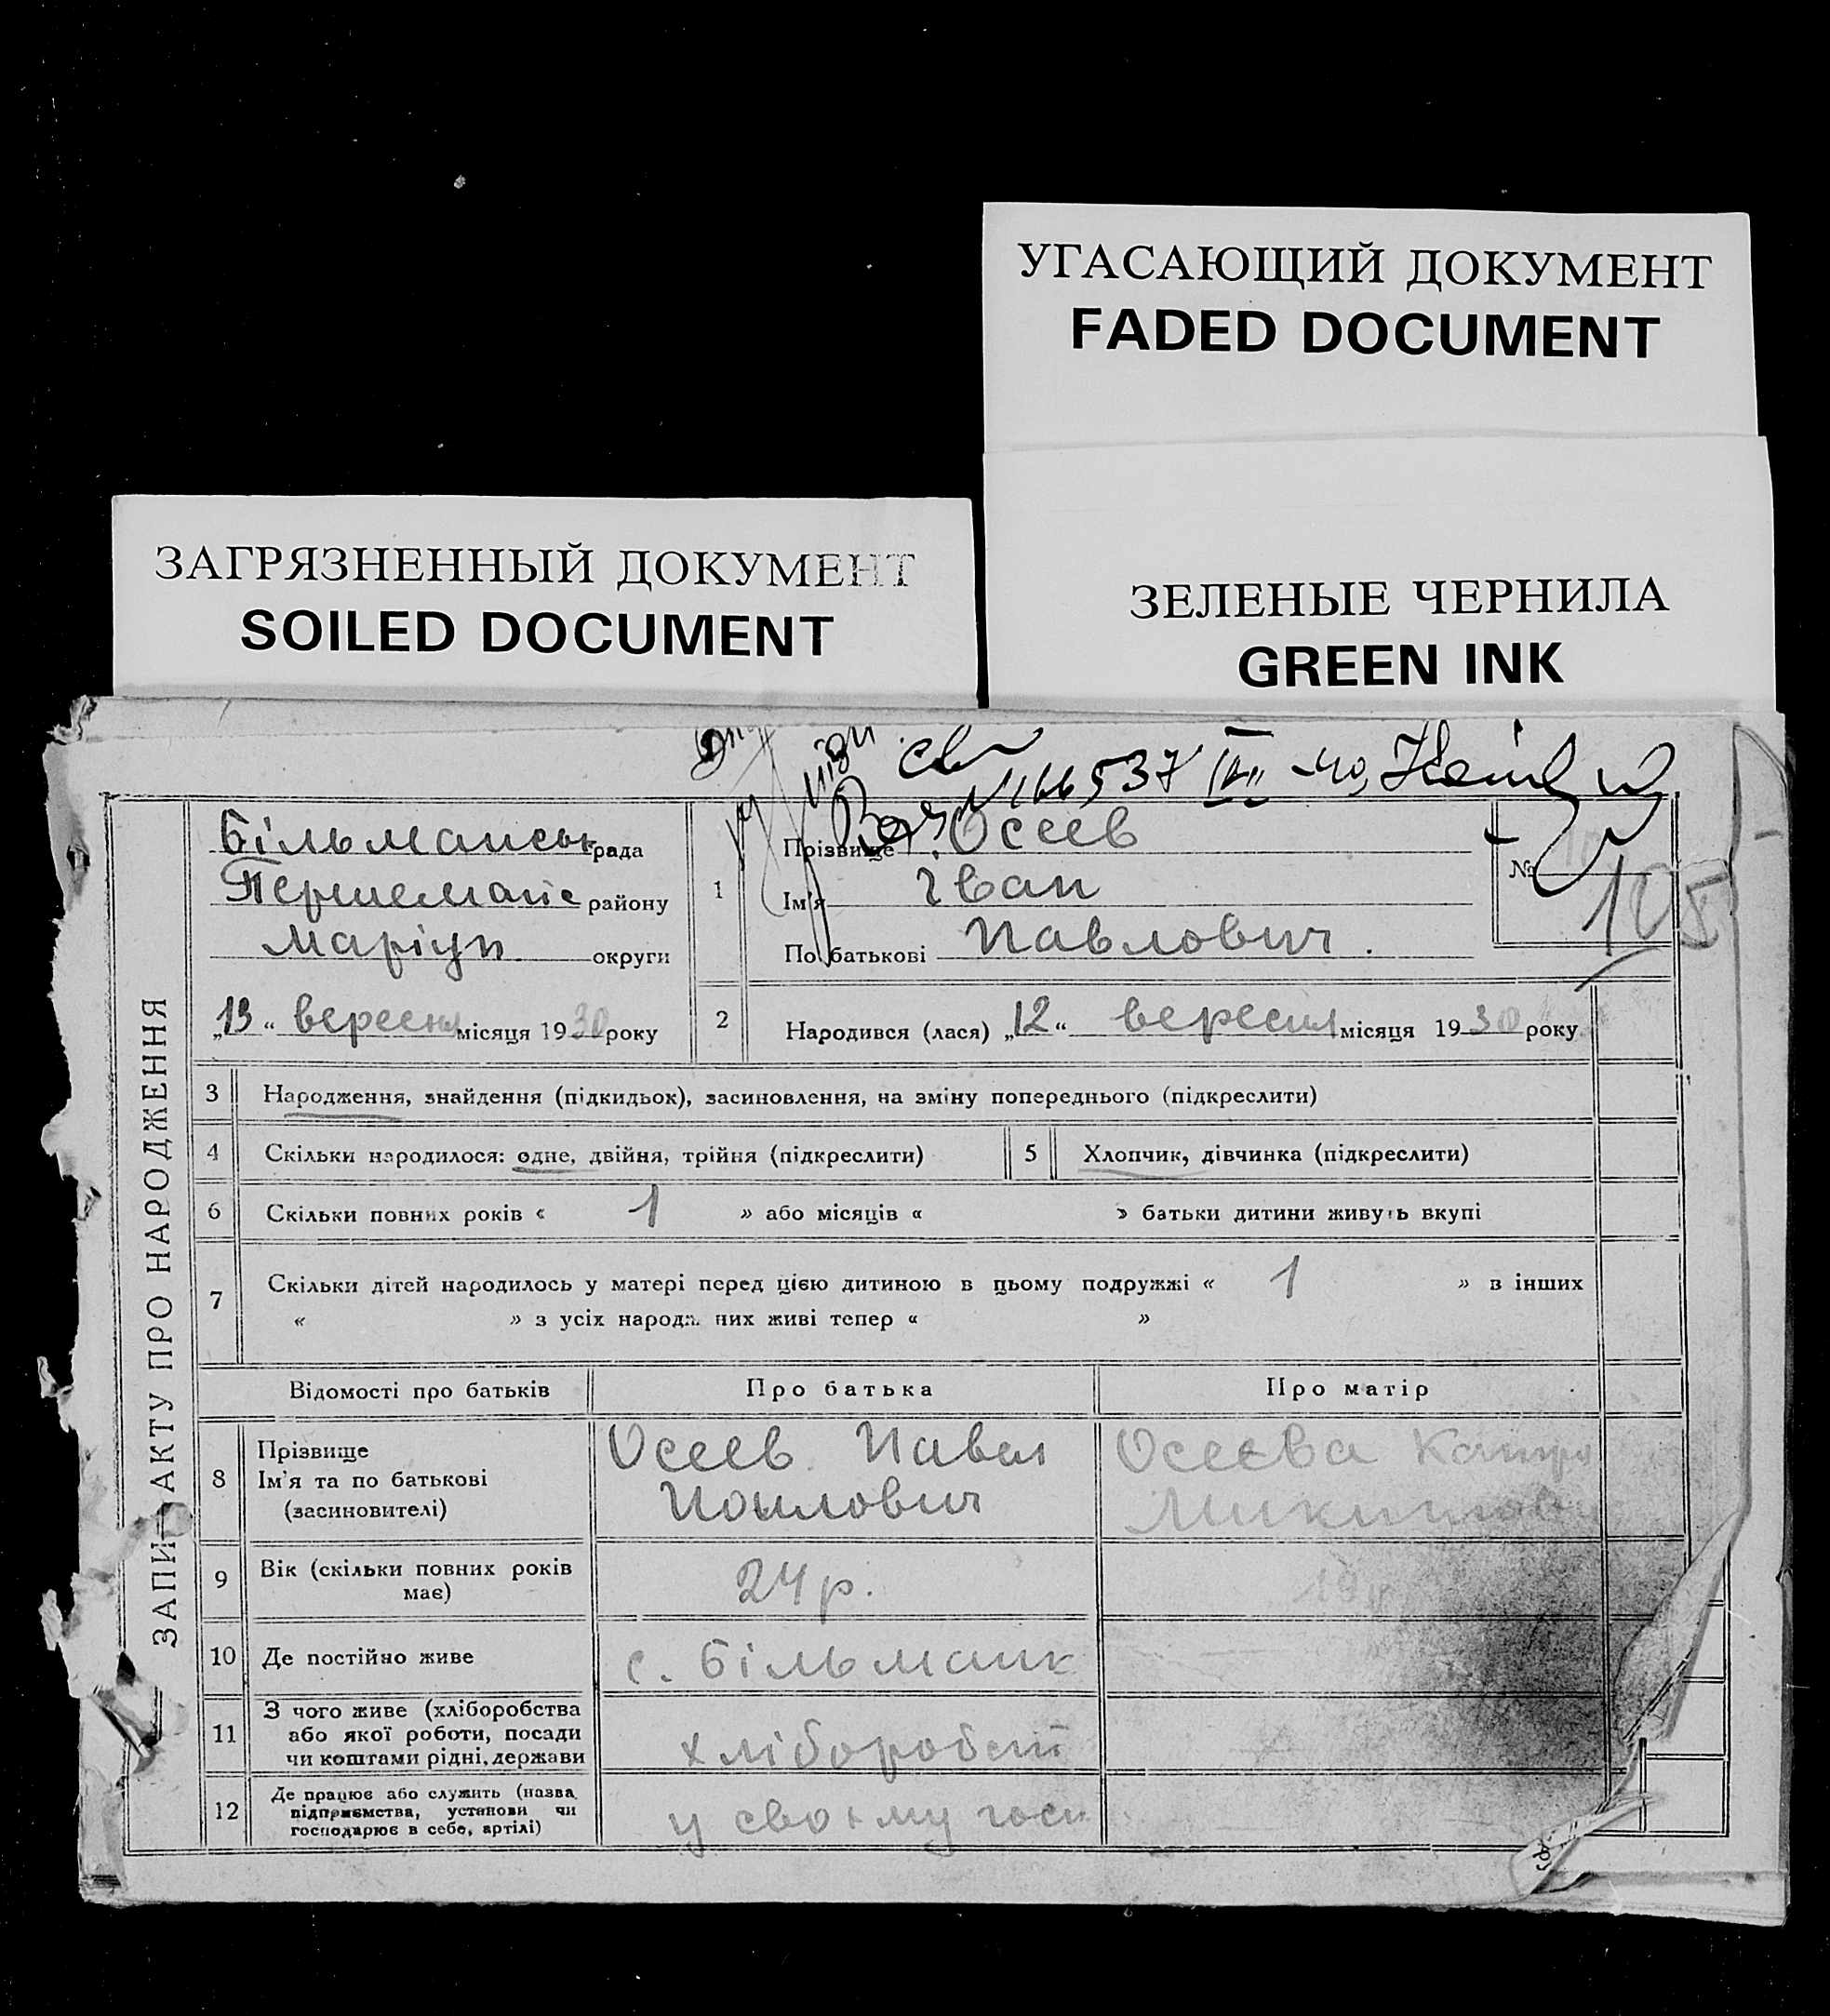 УГАСАЮЩИЙ ДОКУМЕНТ
FADED DOCUMENT
ЗАГРЯЗНЕННЫЙ ДОКУМЕНТ
SOILED DOCUMENT
ЗЕЛЕНЫЕ ЧЕРНИЛА
GREEN INK
ЗАПИ АКТУ ПРО НАРОДЖЕННЯ
Більманськ рада
Першемайс району
Маріуп. округи
„13“ вересня місяця 1930 року
1
Прізвище Осеев
Ім'я Іван
По батькові Павлович.
№ 105
2 Народився (лася) „12“ вересня місяця 1930 року
3 Народження, знайдення (підкидьок), засиновлення, на зміну попереднього (підкреслити)
4 Скільки народилося: одне, двійня, трійня (підкреслити) 5 Хлопчик, дівчинка (підкреслити)
6 Скільки повних років « 1 » або місяців « » батьки дитини живуть вкупі
7 Скільки дітей народилось у матері перед цією дитиною в цьому подружжі « 1 » в інших
« » з усіх народж них живі тепер « »
Відомості про батьків Про батька Про матір
8 Прізвище
Ім'я та по батькові
(засиновителі)
Осеев Павел
Осеєва
9 Вік (скільки повних років
має)
24 р.
10 Де постійно живе с. Більманк
11 З чого живе (хліборобства
або якої роботи, посади
чи коштами рідні, держави
хліборобст
12 Де працює або служить (назва
підприємства, установи чи
господарює в себе, артілі)
у своему госп